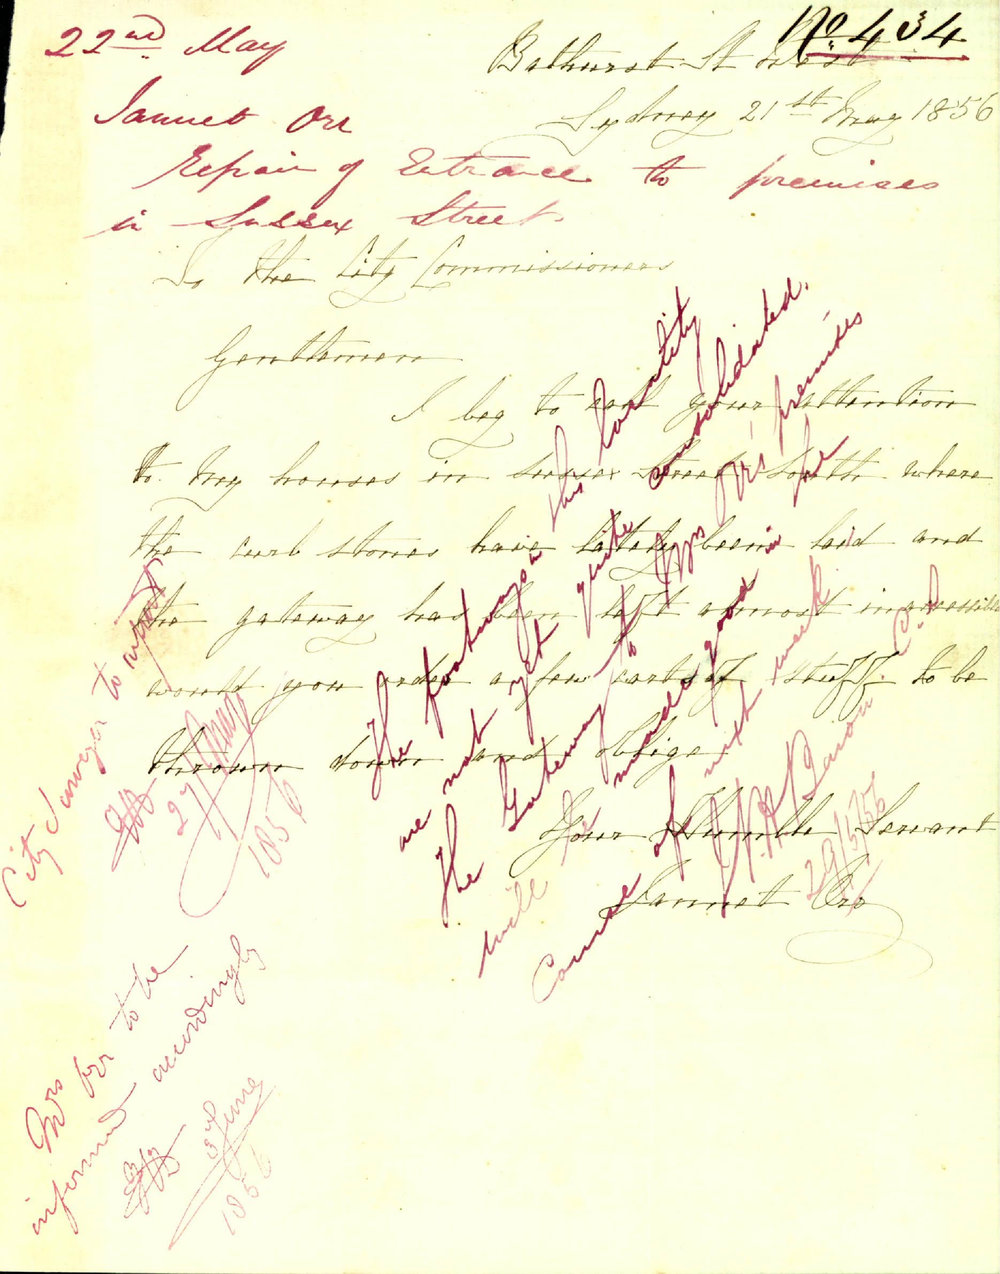 No. 434
22nd May
Bathurst St West
Sydney 21st May 1856
Jannet Orr
Repair of Entrance to premises
in Sussex Street.
To the City Commissioners
Gentlemen
I beg to call your attention
to My houses in Sussex Street South where
the curb stones have lately been laid and
the gateway has been left almost inaccessible
would you order a few carts of stuff to be
thrown down and oblige
Your Humble Servant
Jannet Orr
The footways in this locality
are not yet quite consolidated.
The Gateway to Mrs Orr's premises
will be made good in the
course of next week
29/5/56
City Surveyor to report
27 May
1856
Mrs Orr to be
informed accordingly
3rd June
1856